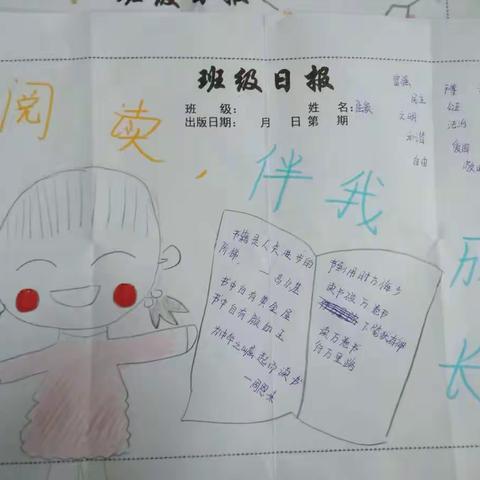 班级日报
班级日报
班 级: 姓 名:
出版日期: 月 日 第 期
阅卖，伴我成长
富强
民主
文明
和谐
自由
平等
公正
法治
爱国
书籍是人类进步的
阶梯。 —高尔基
书中自有黄金屋
书中自有颜如玉
为中华之崛起而读书
—周恩来
书到用时方恨少
读书破万卷
下笔如有神
读万卷书
行万里路